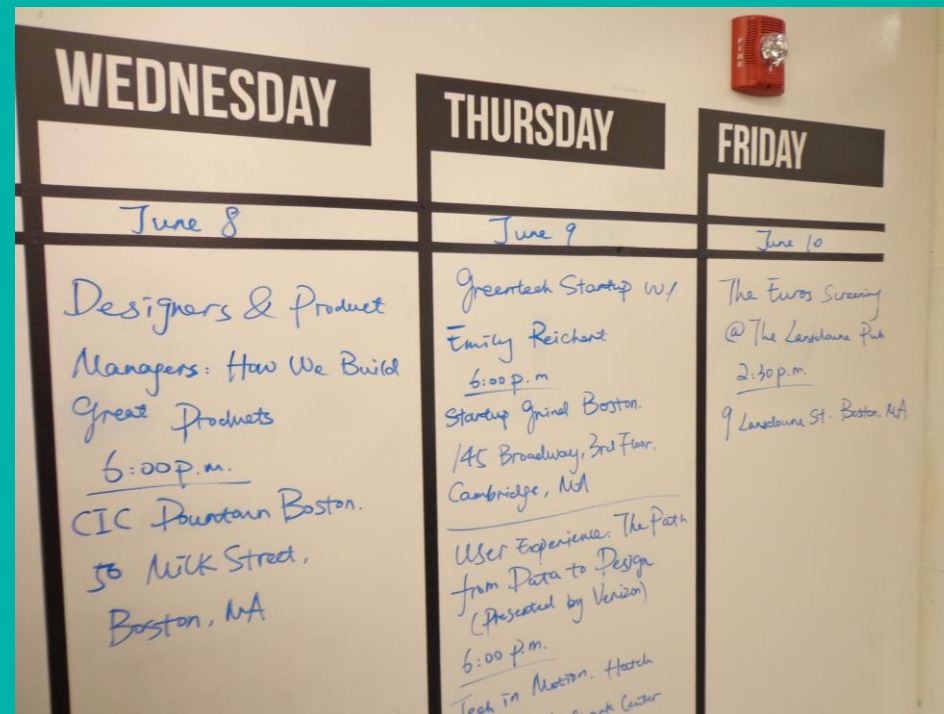 WEDNESDAY
June 8
Designers & Product
Managers: How We Build
Great Products
6:00 p.m.
CIC Downtown Boston.
50 Milk Street,
Boston, MA
THURSDAY
June 9
Greentech Startup w/
Emily Reichert
6:00 p.m
Startup Grind Boston.
145 Broadway, 3rd Floor.
Cambridge, MA
User Experience: The Path
from Data to Design
(Presented by Verizon)
6:00 p.m.
Tech in Motion. Hatch
Center
FRIDAY
June 10
The Euros Screening
@ The Lansdowne Pub
2:30 p.m.
9 Lansdowne St. Boston, MA
FIRE